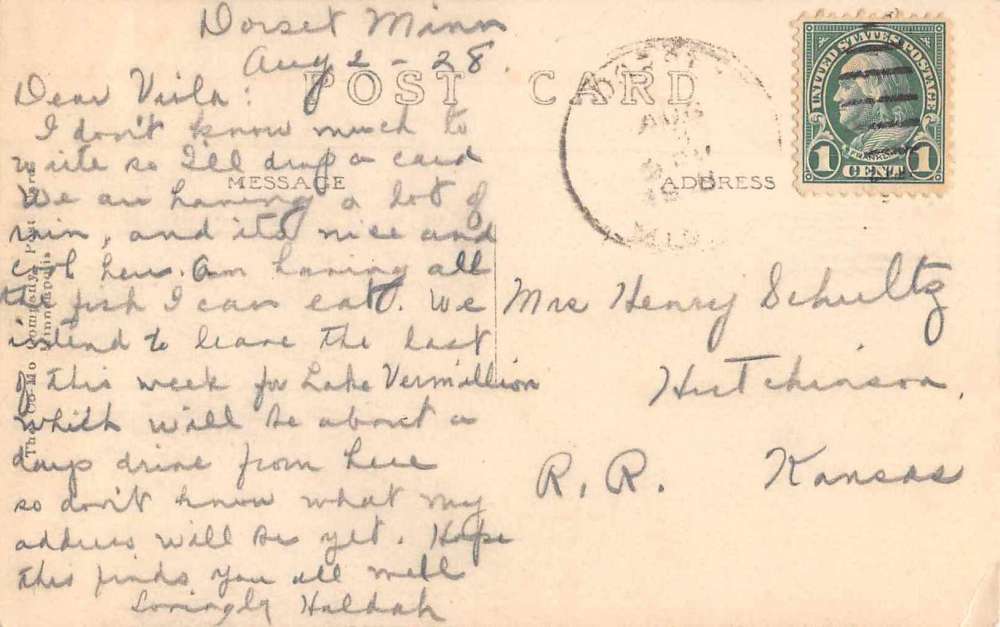 Dorset Minn
Aug 2 - 28
POST CARD
Dear Viola:
I don't know much to
write so I'll drop a card
We are having a lot of
rain, and its nice and
cool here. Am having all
the fish I can eat. We
intend to leave the last
of this week for Lake Vermillion
which will be about a
days drive from here
so don't know what my
address will be yet. Hope
this finds you all well
Lovingly Huldah
MESSAGE
ADDRESS
The Co-Mo Company, Post
Minneapolis
AUG
MINN
UNITED STATES POSTAGE
FRANKLIN
1 CENT 1
Mrs Henry Schultz
Hutchinson,
R. R. Kansas